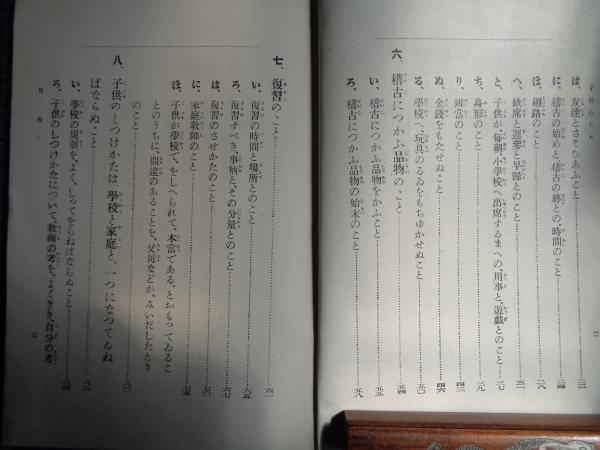 子供のため
二
は、友達とさそひあふこと……二三
に、稽古の始めと、稽古の終との時間のこと……二四
ほ、廻路のこと……二八
へ、缺席と、遲參と、早歸とのこと……三二
と、子供が、毎朝、小學校へ出席するまへの、用事と、遊戯とのこと……三七
ち、身形のこと……三九
り、辨當のこと……四三
ぬ、金錢をもたせぬこと……四六
る、學校へ、玩具のるゐをもちゆかせぬこと……五〇
六、稽古につかふ品物のこと……五四
い、稽古につかふ品物をかふこと……五五
ろ、稽古につかふ品物の始末のこと……五八
七、復習のこと……六一
い、復習の時間と場所とのこと……六一
ろ、復習すべき、事柄と、その分量とのこと……六五
は、復習のさせかたのこと……六七
に、家庭敎師のこと……七〇
ほ、子供が學校で、をしへられて、本當である、とおもつてゐるこ
とのうちに、間違のあることを、父母などが、みいだしたとき
のこと……七五
八、子供のしつけかたは、學校と家庭と、一つになつてゐね
ばならぬこと……八〇
い、學校の規則を、よく、しつてをらねばならぬこと……八二
ろ、子供のしつけかたについて、敎師の考を、よくきき、自分の考
目次
三